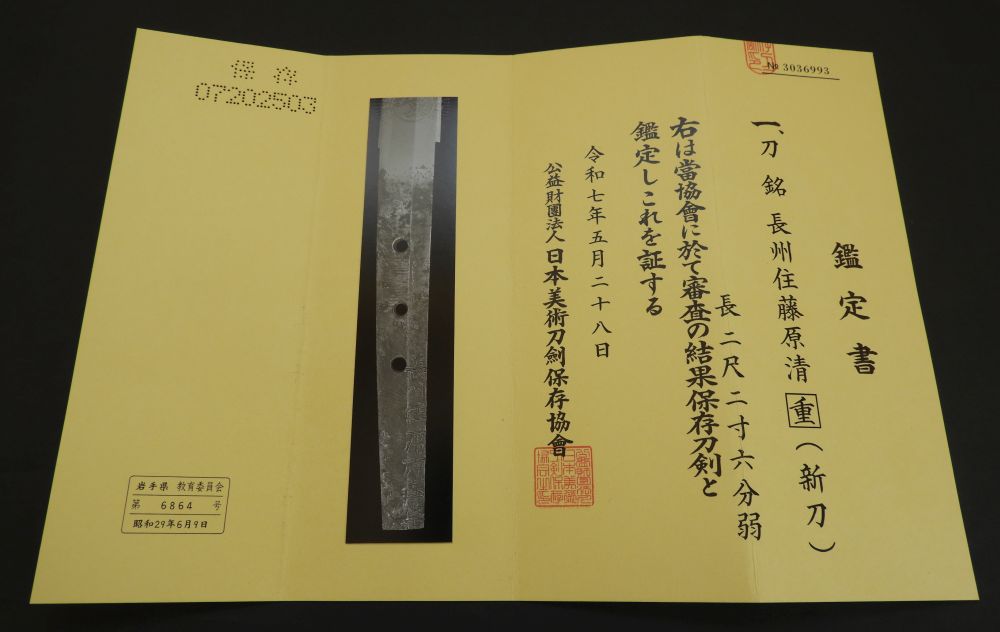 № 3036993
鑑定書
一、刀 銘 長州住藤原清重(新刀)
長二尺二寸六分弱
右は當協會に於て審査の結果保存刀剣と
鑑定しこれを証する
令和七年五月二十八日
公益財團法人日本美術刀劍保存協會
保存
07202503
岩手県 教育委員会
第 6864 号
昭和29年6月9日